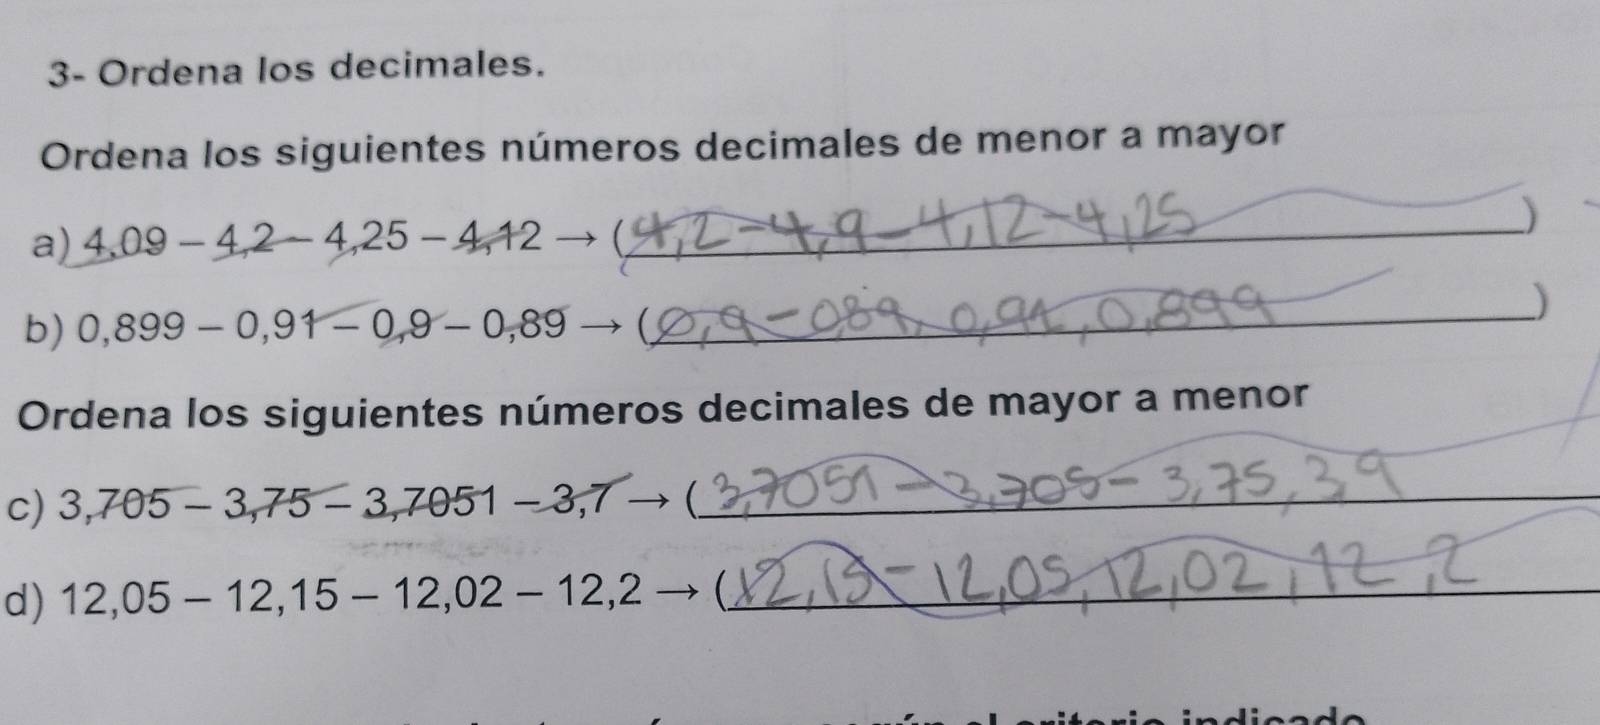 3- Ordena los decimales.
Ordena los siguientes números decimales de menor a mayor
a) 4,09 – 4,2 – 4,25 – 4,12 → (4,2 – 4,9 – 4,12 – 4,25)
b) 0,899 – 0,91 – 0,9 – 0,89 → (0,9 – 0,89, 0,91, 0,899)
Ordena los siguientes números decimales de mayor a menor
c) 3,705 – 3,75 – 3,7051 – 3,7 → (3,7051 – 3,705 – 3,75, 3,9
d) 12,05 – 12,15 – 12,02 – 12,2 → (12,15 – 12,05, 12,02, 12,2
criterio indicado